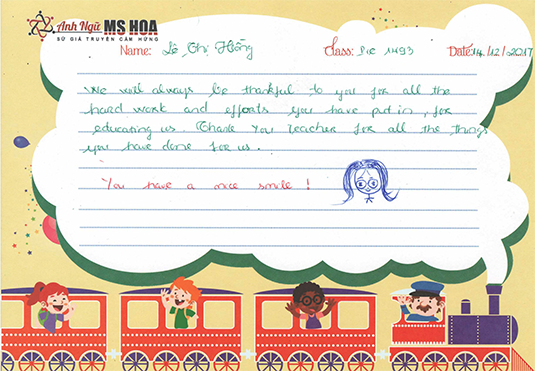 Anh Ngữ MS HOA
SỨ GIẢ TRUYỀN CẢM HỨNG
Name: Lê Thị Hồng Class: Pre 1493 Date: 14/12/2017
We will always be thankful to you for all the
hard work and efforts you have put in, for
educating us. Thank you teacher for all the things
you have done for us.
You have a nice smile !